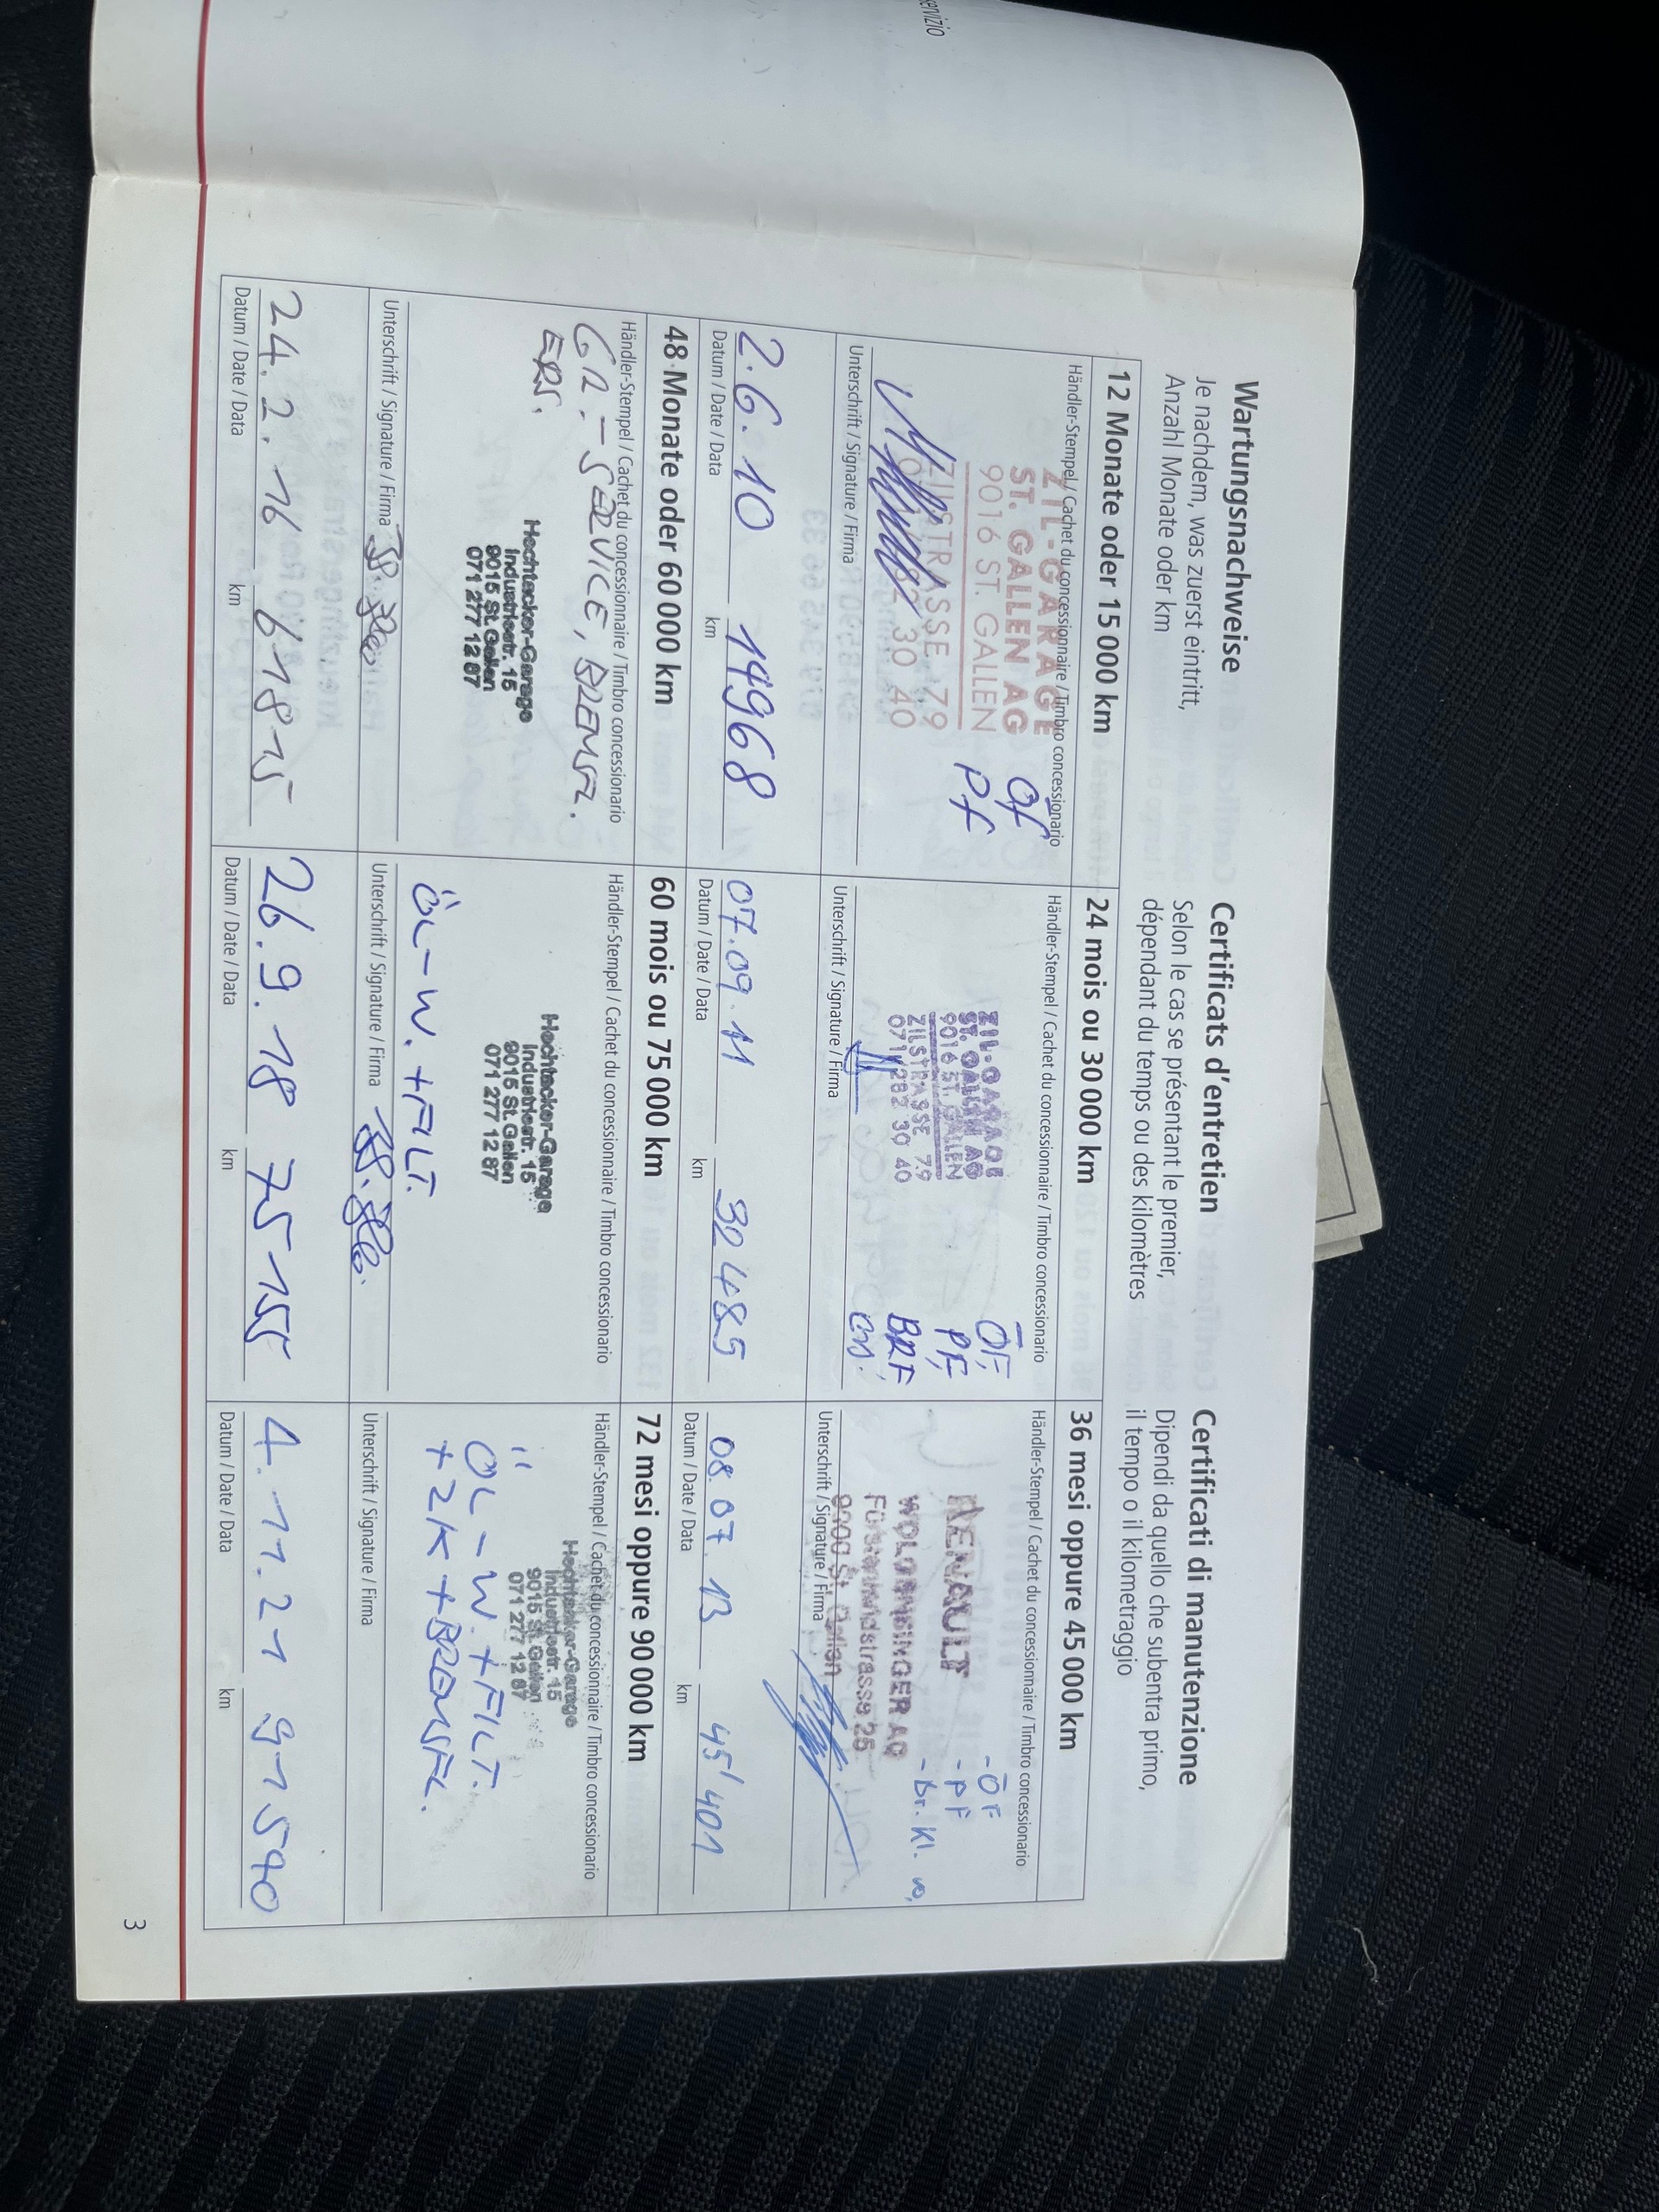 ervizio
Wartungsnachweise
Je nachdem, was zuerst eintritt,
Anzahl Monate oder km
Certificats d'entretien
Selon le cas se présentant le premier,
dépendant du temps ou des kilomètres
Certificati di manutenzione
Dipendi da quello che subentra primo,
il tempo o il kilometraggio
12 Monate oder 15 000 km
Händler-Stempel / Cachet du concessionnaire / Timbro concessionario
ZIL-GARAGE
ST. GALLEN AG
9016 ST. GALLEN
ZILSTRASSE 79
30 40
Öf
Pf
Unterschrift / Signature / Firma
2.6.10
14968
Datum / Date / Data
km
24 mois ou 30 000 km
Händler-Stempel / Cachet du concessionnaire / Timbro concessionario
ZIL-GARAGE
ST. GALLEN AG
9016 ST. GALLEN
ZILSTRASSE 79
071/282 30 40
ÖF,
PF,
BRF
ers.
Unterschrift / Signature / Firma
07.09.11
32485
Datum / Date / Data
km
36 mesi oppure 45 000 km
Händler-Stempel / Cachet du concessionnaire / Timbro concessionario
RENAULT
9300 St. Gallen
- ÖF
- PF
- Br. Kl.
Unterschrift / Signature / Firma
08.07.13
45'401
Datum / Date / Data
km
48 Monate oder 60 000 km
Händler-Stempel / Cachet du concessionnaire / Timbro concessionario
GR. - SERVICE, BREMSFL.
ERS.
Hechtacker-Garage
Industriestr. 15
9015 St. Gallen
071 277 12 87
Unterschrift / Signature / Firma
24.2.16
61815
Datum / Date / Data
km
60 mois ou 75 000 km
Händler-Stempel / Cachet du concessionnaire / Timbro concessionario
Hechtacker-Garage
Industriestr. 15
9015 St. Gallen
071 277 12 87
ÖL-W. + FILT.
Unterschrift / Signature / Firma
26.9.18
75155
Datum / Date / Data
km
72 mesi oppure 90 000 km
Händler-Stempel / Cachet du concessionnaire / Timbro concessionario
Hechtacker-Garage
Industriestr. 15
9015 St. Gallen
071 277 12 87
ÖL-W. + FILT.
+ ZK + BREMSFL.
Unterschrift / Signature / Firma
4.11.21
91540
Datum / Date / Data
km
3